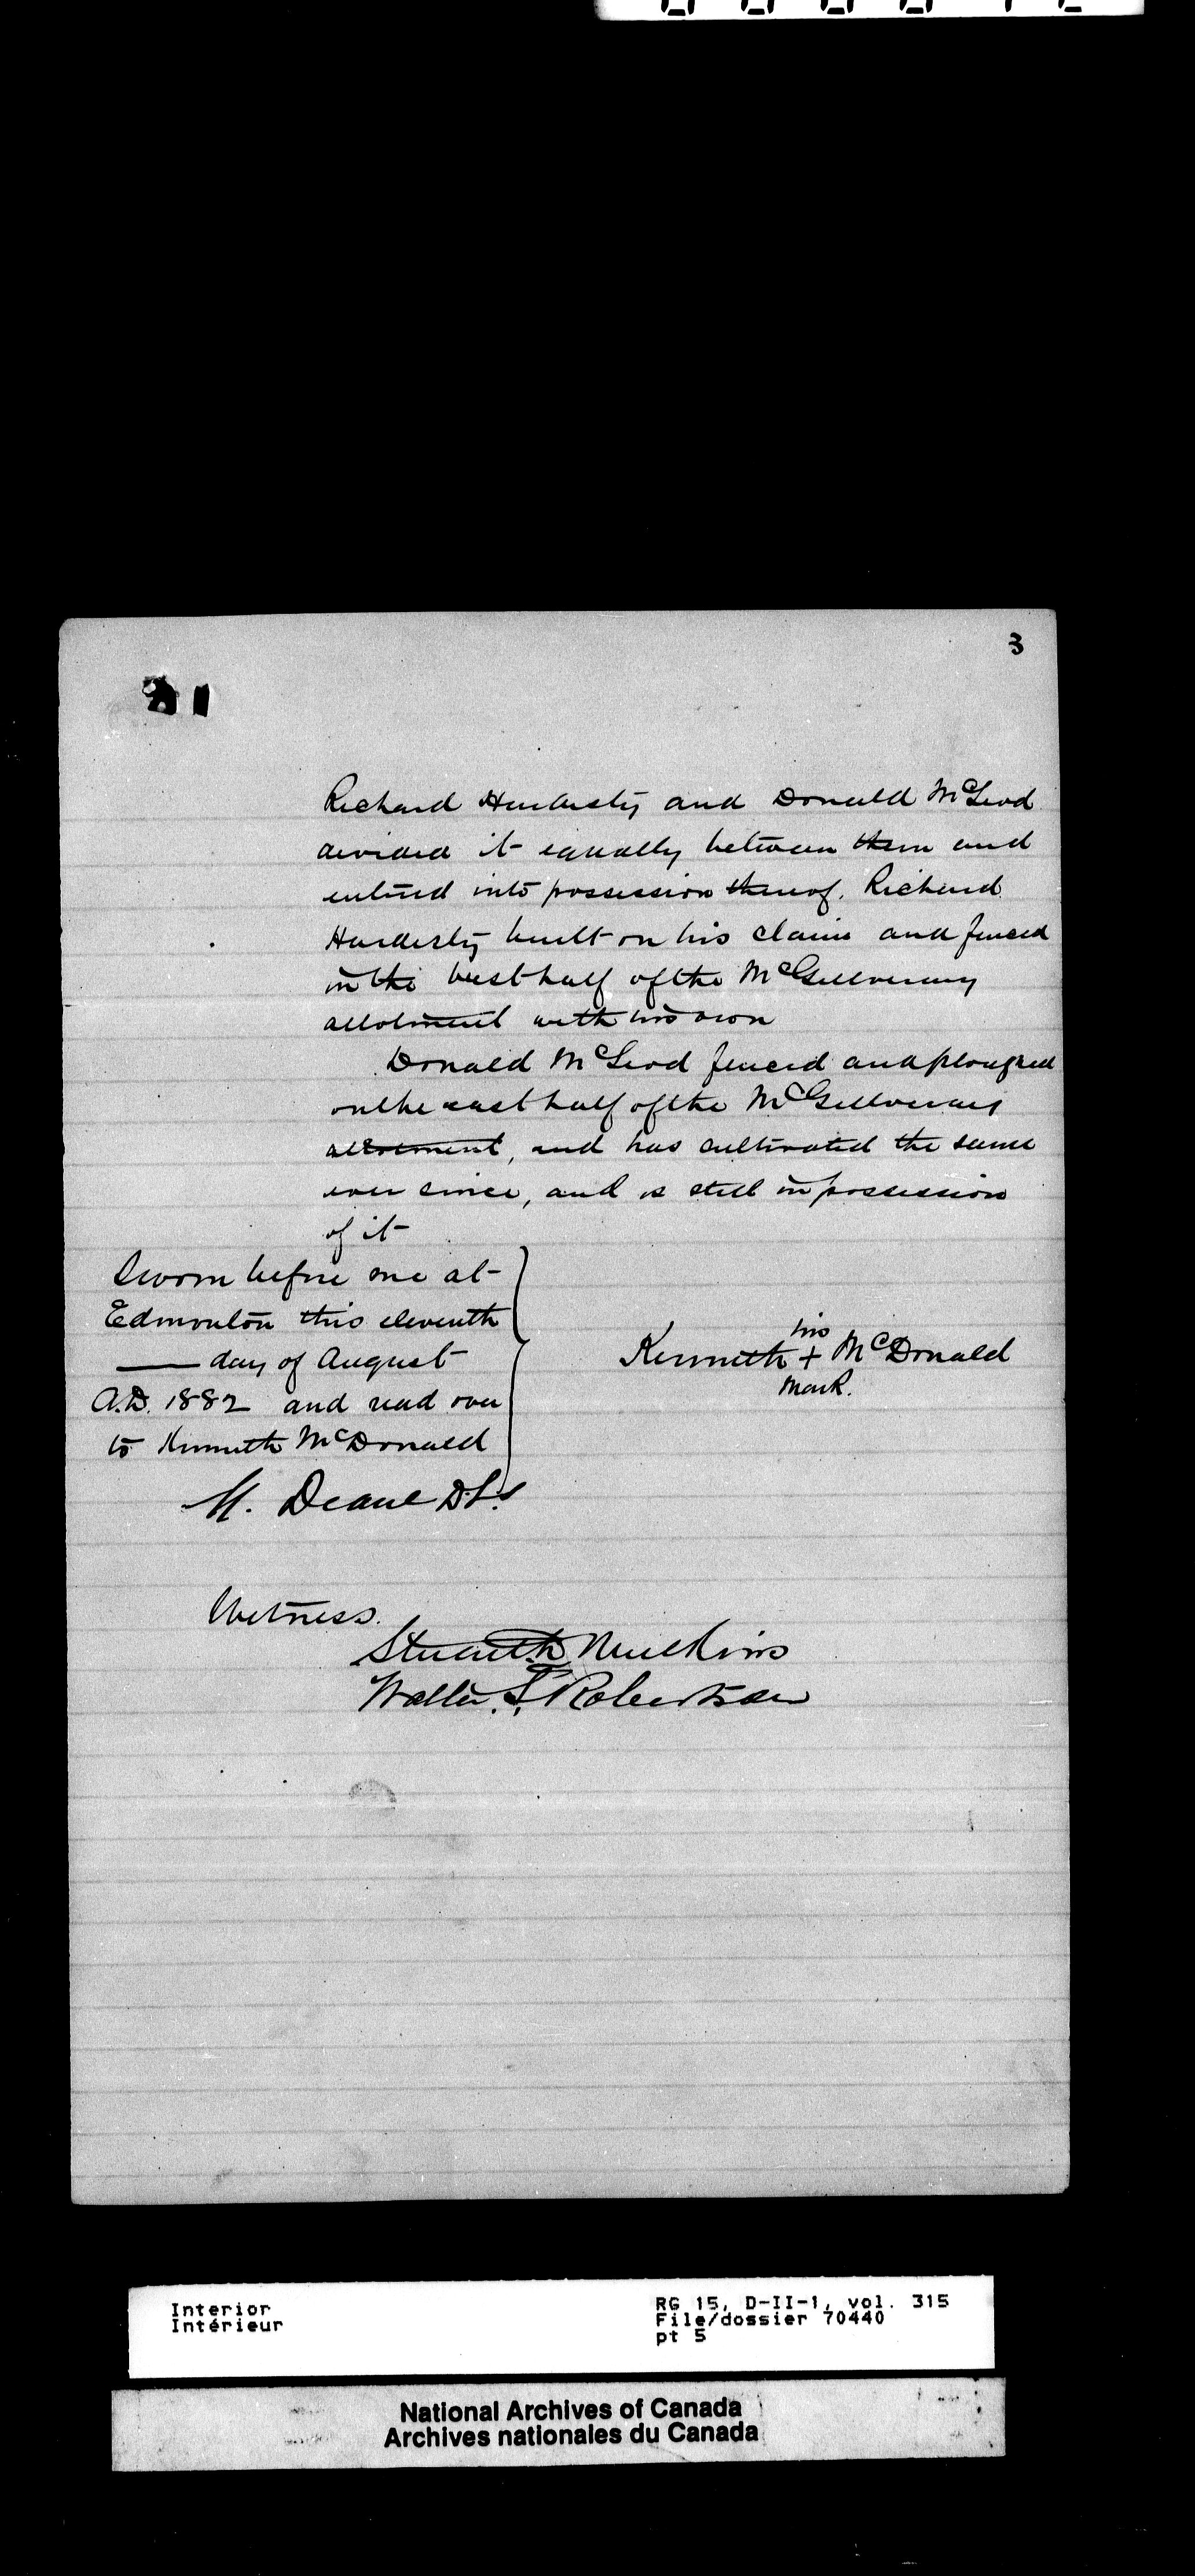 3
Richard Hardisty and Donald McLeod
divided it equally between them and
entered into possession thereof. Richard
Hardisty built on his claim and fenced
in the west half of the McGillvrary
allotment with his own
Donald McLeod fenced and ploughed
on the east half of the McGillvrary
allotment, and has cultivated the same
ever since, and is still in possession
of it
Sworn before me at
Edmonton this eleventh
day of August
A.D. 1882 and read over
to Kenneth McDonald
his
Kenneth + McDonald
mark.
M. Deane D.L.S
Witness.
Stuart Mulkins
Walter S. Robertson
Interior
Intérieur
RG 15, D-II-1, vol. 315
File/dossier 70440
pt 5
National Archives of Canada
Archives nationales du Canada